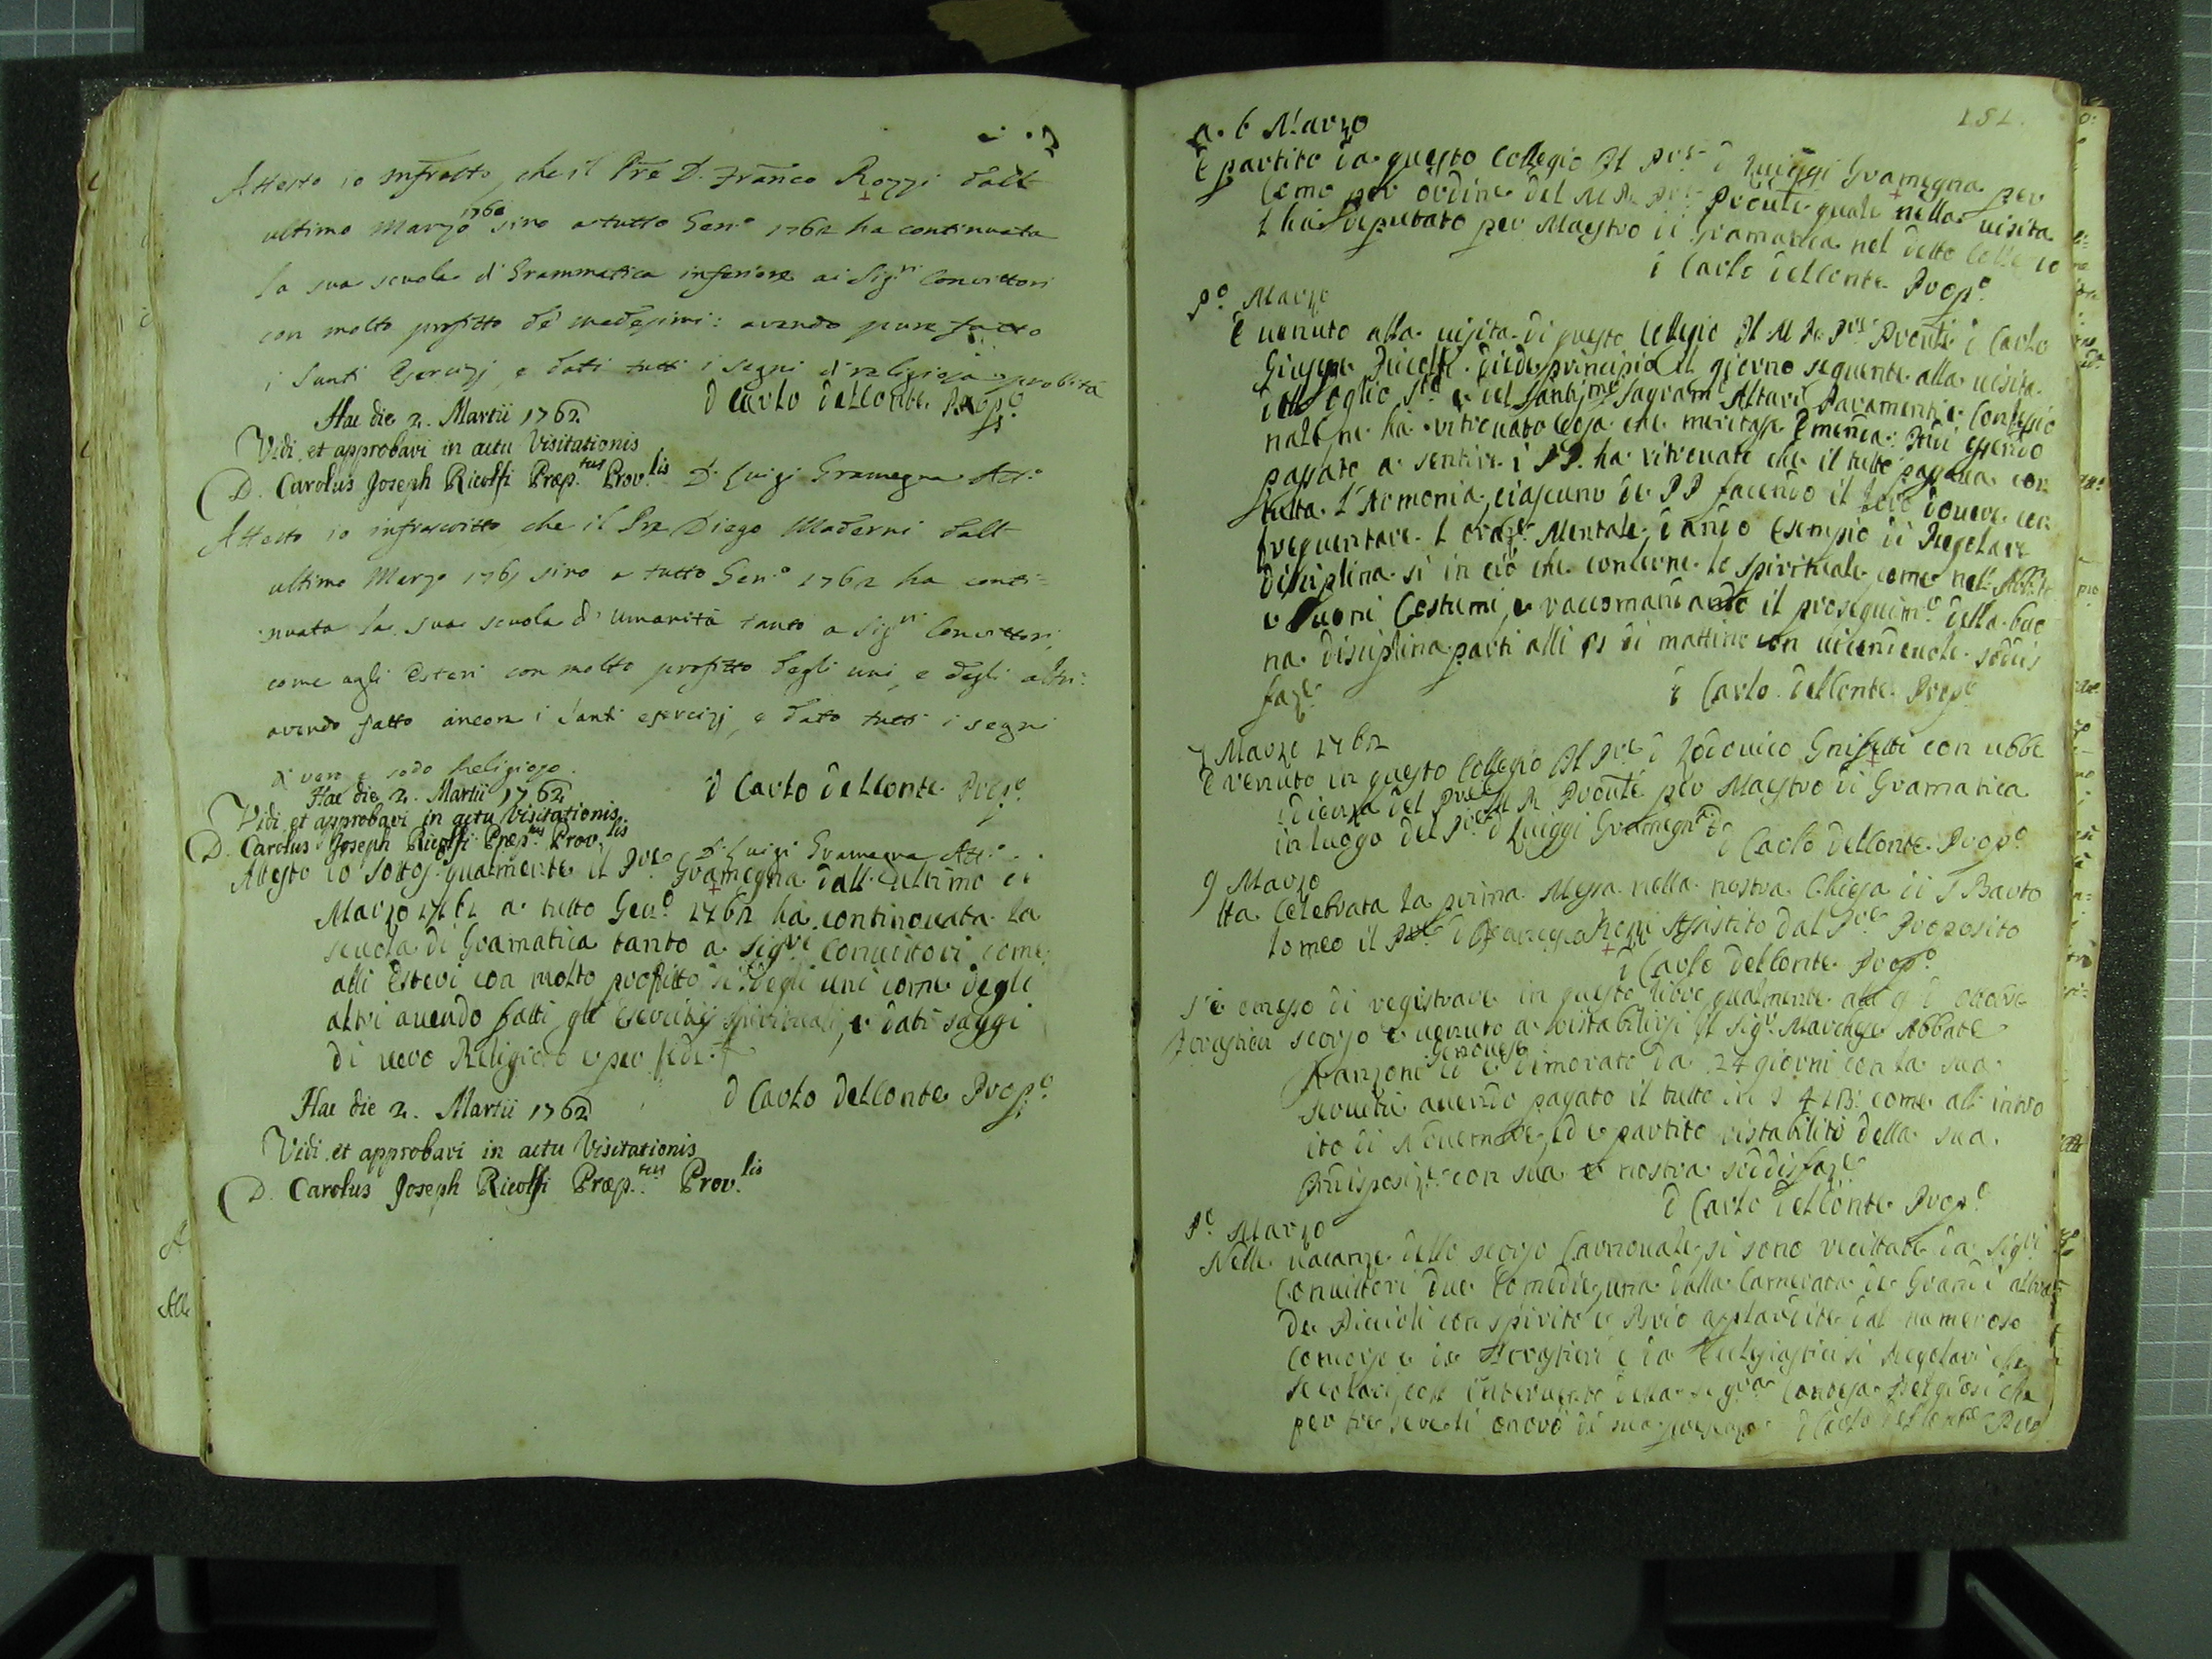 Attesto io Infratto, che il Pre D. Franco Rozzi dall
ultimo Marzo 1760 sino a tutto Gen.o 1762 ha continuata
la sua scuola di Grammatica inferiore ai Sig.ri Convittori
con molto profitto de' medesimi: avendo pure fatto
i Santi Esercizj, e dati tutti i segni di religiosa probità
D Carlo Delconte Prop.o
Hac die 2. Martii 1762
Vidi et approbavi in actu Visitationis
D. Carolus Joseph Ricolfi Præp.tus Prov.lis
D. Luigi Gramegna Att.o
Attesto io infrascritto che il Pre Diego Maderni dall
ultimo Marzo 1761 sino a tutto Gen.o 1762 ha conti=
nuata la sua scuola d' umanità tanto a Sig.ri Convittori,
come agli Esteri con molto profitto degli uni, e degli altri:
avendo fatto ancora i Santi esercizj, e dato tutti i segni
di vero e sodo Religioso.
D Carlo Delconte Prop.o
Hac die 2. Martii 1762
Vidi et approbavi in actu Visitationis
D. Carolus Joseph Ricolfi Præp.tus Prov.lis
D. Luigi Gramegna Att.o
Attesto io sottos. qualmente il P.re Gramegna dall ultimo di
Marzo 1761 a tutto Gen.o 1762 ha continouata la
scuola di Gramatica tanto a Sig.ri Convittori come
alli Esteri con molto profitto si degli uni come degli
altri avendo fatti gli Esercitij spirituali, e dati saggi
di vero Religioso e per fede
D Carlo Delconte Prop.o
Hac die 2. Martii 1762
Vidi et approbavi in actu Visitationis
D. Carolus Joseph Ricolfi Præp.tus Prov.lis
151.
6 Marzo
È partito da questo Collegio Il P.re D Luiggi Gramegna per
Como per ordine del M R P.re Proule quale nella visita
l ha deputato per Maestro di Gramatica nel detto Collegio
D Carlo Delconte Prop.o
P.o Marzo
È venuto alla visita di questo Collegio Il M R P.re Proule D Carlo
Giuseppe Ricolfi diede principio il giorno seguente alla visita
dell Oglio S.to e del Santis.mo Sagram. Altari Paramenti e Confessio
nali ne ha ritrovato cosa che meritasse Emenda: Indi essendo
passato a sentire i PP. ha ritrovato che il tutto passava con
tutta l'Armonia, ciascuno de PP facendo il suo dovere con
frequentare l oraz.e Mentale, dando Esempio di Regolare
disciplina si in ciò che concerne lo spirituale come nell Abito
e buoni Costumi, e raccomandando il proseguim.o della buo
na disciplina parti alli di mattina con vicendevole soddis
faz.e
D Carlo Delconte Prop.o
7 Marzo 1762
È venuto in questo Collegio Il P.re D Lodovico Grisetti con ubbe
dienza del P.re M R Proule per Maestro di Gramatica
in luogo del P.re D Luiggi Gramegna
D Carlo Delconte Prop.o
9 Marzo
Ha Celebrata la prima Messa nella nostra Chiesa di S Barto
lomeo il P.re D Rozzi Assistito dal P.re Proposito
D Carlo Delconte Prop.o
S'è omesso di registrare in questo libro qualmente
Forastieri scorso è venuto a ristabilirsi il Sig.r Marchese Abbate
Genovese ed è dimorato da 24 giorni con la sua
servitù avendo pagato il tutto come all intro
ito di Novembre, ed è partito ristabilito della sua
Indisposiz.e con sua e nostra soddisfaz.e
D Carlo Delconte Prop.o
P.o Marzo
Nelle vacanze dello scorso Carnovale si sono recittate da Sig.ri
Convittori due Comedie, una dalla Camerata de Grandi altra
de Piccioli con spirito e Brio applaudite dal numeroso
Concorso e da Forastieri e da Eclesiastici si Regolari che
secolari, coll intervento della Sig.ra Contessa che
per tre sere li onorò di sua presenza D Carlo Delconte Prop